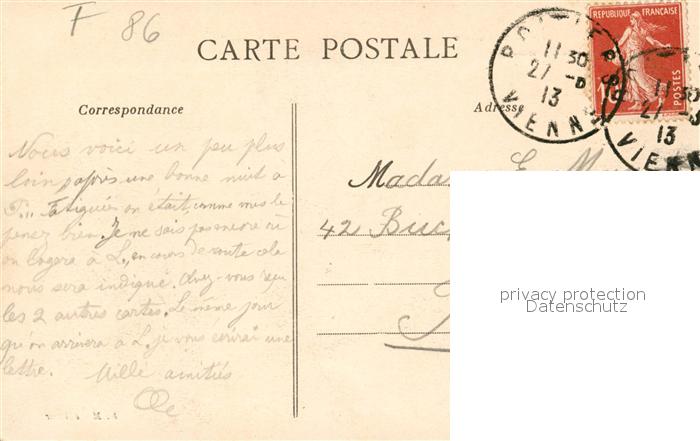 F 86
CARTE POSTALE
RÉPUBLIQUE FRANÇAISE
POSTES
POITIERS
11 30
27 -8
13
VIENNE
11 30
27 -8
13
VIENNE
Correspondance
Adresse
Nous voici un peu plus
loin après une bonne nuit à
P... Fatiguées on était, comme vous le
pensez bien. Je ne sais pas encore où
on logera à L., en cours de route cela
nous sera indiqué. Avez-vous reçu
les 2 autres cartes. Le même jour
qu'on arrivera à L. je vous écrirai une
lettre. Mille amitiés
Mada
E. M
42 Buc
privacy protection
Datenschutz